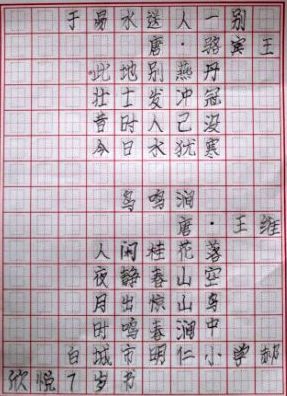 于易水送人一别
唐·骆宾王
此地别燕丹
壮士发冲冠
昔时人己没
今日水犹寒
鸟鸣涧
唐·王维
人闲桂花落
夜静春山空
月出惊山鸟
时鸣春涧中
白城市明仁小学郝
欣悦7岁书